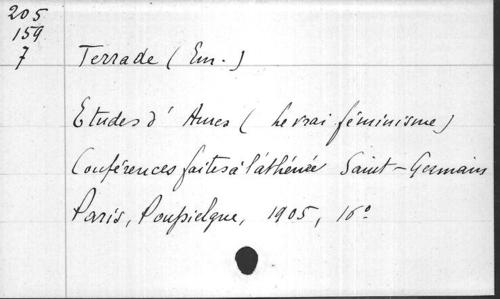 205
159
7
Terrade (Em.)
Etudes d'Ames (le vrai féminisme)
Conférences faites à l'athénée Saint-Germain
Paris, Poussielgue, 1905, 16°